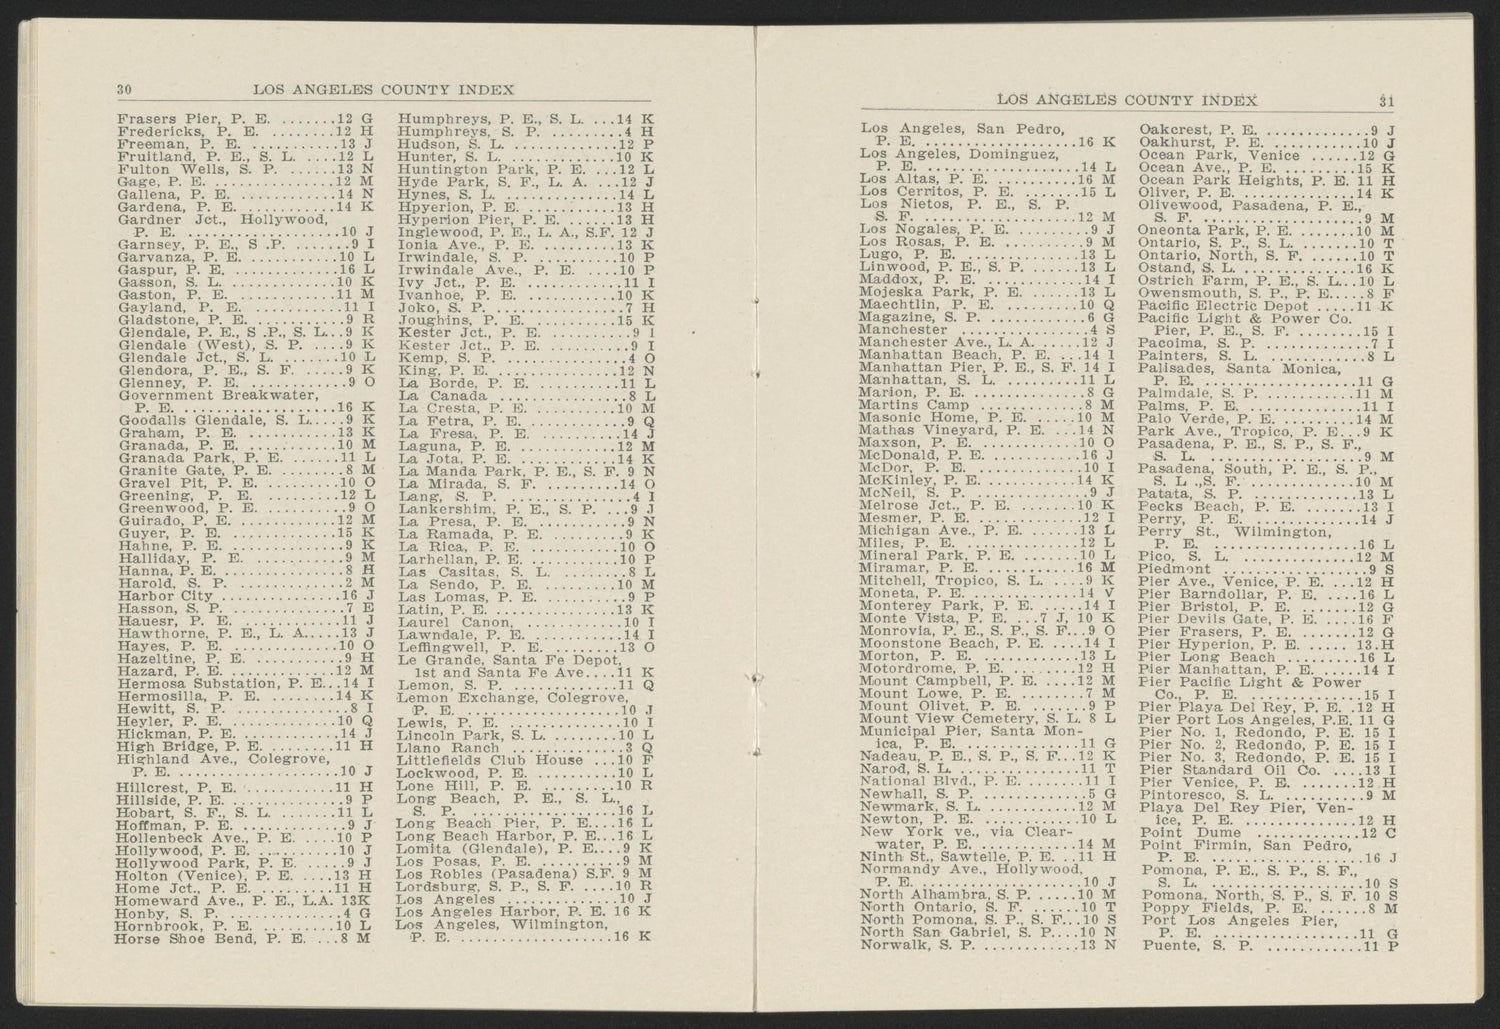 30 LOS ANGELES COUNTY INDEX
Frasers Pier, P. E. .......12 G
Fredericks, P. E. ........12 H
Freeman, P. E. ...........13 J
Fruitland, P. E., S. L. ....12 L
Fulton Wells, S. P. ......13 N
Gage, P. E. ..............12 M
Gallena, P. E. ...........14 N
Gardena, P. E. ..........14 K
Gardner Jct., Hollywood,
P. E. ...................10 J
Garnsey, P. E., S .P. .......9 I
Garvanza, P. E. ..........10 L
Gaspur, P. E. ............16 L
Gasson, S. L. ............10 K
Gaston, P. E. ...........11 M
Gayland, P. E. ..........11 I
Gladstone, P. E. ..........9 R
Glendale, P. E., S .P., S. L...9 K
Glendale (West), S. P. ....9 K
Glendale Jct., S. L. .......10 L
Glendora, P. E., S. F. .....9 K
Glenney, P. E. ...........9 O
Government Breakwater,
P. E. ...................16 K
Goodalls Glendale, S. L....9 K
Graham, P. E. ...........13 K
Granada, P. E. ..........10 M
Granada Park, P. E. ......11 L
Granite Gate, P. E. ........8 M
Gravel Pit, P. E. ..........10 O
Greening, P. E. .........12 L
Greenwood, P. E. .........9 O
Guirado, P. E. ...........12 M
Guyer, P. E. ............15 K
Hahne, P. E. .............9 K
Halliday, P. E. ...........9 M
Hanna, P. E. .............8 H
Harold, S. P. ............2 M
Harbor City ..............16 J
Hasson, S. P. ............7 E
Hauesr, P. E. ............11 J
Hawthorne, P. E., L. A.....13 J
Hayes, P. E. ............10 O
Hazeltine, P. E. ...........9 H
Hazard, P. E. ............12 M
Hermosa Substation, P. E...14 I
Hermosilla, P. E. ........14 K
Hewitt, S. P. .............8 I
Heyler, P. E. ............10 Q
Hickman, P. E. ...........14 J
High Bridge, P. E. ........11 H
Highland Ave., Colegrove,
P. E. ...................10 J
Hillcrest, P. E. ...........11 H
Hillside, P. E. .............9 P
Hobart, S. F., S. L. .......11 L
Hoffman, P. E. ............9 J
Hollenbeck Ave., P. E. ....10 P
Hollywood, P. E. ..........10 J
Hollywood Park, P. E. .....9 J
Holton (Venice), P. E. ....13 H
Home Jct., P. E. .........11 H
Homeward Ave., P. E., L.A. 13K
Honby, S. P. .............4 G
Hornbrook, P. E. .........10 L
Horse Shoe Bend, P. E. ...8 M
Humphreys, P. E., S. L. ...14 K
Humphreys, S. P. .........4 H
Hudson, S. L. ............12 P
Hunter, S. L. ............10 K
Huntington Park, P. E. ...12 L
Hyde Park, S. F., L. A. ...12 J
Hynes, S. L. .............14 L
Hpyerion, P. E. ..........13 H
Hyperion Pier, P. E. ......13 H
Inglewood, P. E., L. A., S.F. 12 J
Ionia Ave., P. E. .........13 K
Irwindale, S. P. ..........10 P
Irwindale Ave., P. E. ....10 P
Ivy Jct., P. E. ............11 I
Ivanhoe, P. E. ..........10 K
Joko, S. P. ..............7 H
Joughins, P. E. ..........15 K
Kester Jct., P. E. ..........9 I
Kester Jct., P. E. .........9 I
Kemp, S. P. .............4 O
King, P. E. ..............12 N
La Borde, P. E. ..........11 L
La Canada ...............8 L
La Cresta, P. E. .........10 M
La Fetra, P. E. ...........9 Q
La Fresa, P. E. ..........14 J
Laguna, P. E. ...........12 M
La Jota, P. E. ............14 K
La Manda Park, P. E., S. F. 9 N
La Mirada, S. F. .........14 O
Lang, S. P. ..............4 I
Lankershim, P. E., S. P. ...9 J
La Presa, P. E. ...........9 N
La Ramada, P. E. .........9 K
La Rica, P. E. ...........10 O
Larhellan, P. E. ..........10 P
Las Casitas, S. L. .........8 L
La Sendo, P. E. .........10 M
Las Lomas, P. E. ..........9 P
Latin, P. E. ..............13 K
Laurel Canon, ............10 I
Lawndale, P. E. ..........14 I
Leffingwell, P. E. ........13 O
Le Grande, Santa Fe Depot,
1st and Santa Fe Ave....11 K
Lemon, S. P. ............11 Q
Lemon Exchange, Colegrove,
P. E. ...................10 J
Lewis, P. E. .............10 I
Lincoln Park, S. L. ........10 L
Llano Ranch .............3 Q
Littlefields Club House ...10 F
Lockwood, P. E. .........10 L
Lone Hill, P. E. ..........10 R
Long Beach, P. E., S. L.,
S. P. ..................16 L
Long Beach Pier, P. E....16 L
Long Beach Harbor, P. E...16 L
Lomita (Glendale), P. E....9 K
Los Posas, P. E. ..........9 M
Los Robles (Pasadena) S.F. 9 M
Lordsburg, S. P., S. F. ....10 R
Los Angeles .............10 J
Los Angeles Harbor, P. E. 16 K
Los Angeles, Wilmington,
P. E. ...................16 K
LOS ANGELES COUNTY INDEX 31
Los Angeles, San Pedro,
P. E. ...................16 K
Los Angeles, Dominguez,
P. E. ...................14 L
Los Altas, P. E. ..........16 M
Los Cerritos, P. E. .......15 L
Los Nietos, P. E., S. P.
S. F. ...................12 M
Los Nogales, P. E. .........9 J
Los Rosas, P. E. ..........9 M
Lugo, P. E. ..............13 L
Linwood, P. E., S. P. ......13 L
Maddox, P. E. ...........14 I
Mojeska Park, P. E. ......13 L
Maechtlin, P. E. ..........10 Q
Magazine, S. P. ...........6 G
Manchester ...............4 S
Manchester Ave., L. A. .....12 J
Manhattan Beach, P. E. ...14 I
Manhattan Pier, P. E., S. F. 14 I
Manhattan, S. L. .........11 L
Marion, P. E. .............8 G
Martins Camp ............8 M
Masonic Home, P. E. .....10 M
Mathas Vineyard, P. E. ...14 N
Maxson, P. E. ...........10 O
McDonald, P. E. .........16 J
McDor, P. E. ............10 I
McKinley, P. E. ..........14 K
McNeil, S. P. .............9 J
Melrose Jct., P. E. ........10 K
Mesmer, P. E. ...........12 I
Michigan Ave., P. E. ......13 L
Miles, P. E. .............12 L
Mineral Park, P. E. .......10 L
Miramar, P. E. ...........16 M
Mitchell, Tropico, S. L. .....9 K
Moneta, P. E. ............14 V
Monterey Park, P. E. .....14 I
Monte Vista, P. E. ...7 J, 10 K
Monrovia, P. E., S. P., S. F...9 O
Moonstone Beach, P. E. .....14 I
Morton, P. E. ............13 L
Motordrome, P. E. ........12 H
Mount Campbell, P. E. ....12 M
Mount Lowe, P. E. ........7 M
Mount Olivet, P. E. .......9 P
Mount View Cemetery, S. L. 8 L
Municipal Pier, Santa Mon-
ica, P. E. ...............11 G
Nadeau, P. E., S. P., S. F...12 K
Narod, S. L. .............11 T
National Blvd., P. E. .......11 I
Newhall, S. P. ............5 G
Newmark, S. L. ..........12 M
Newton, P. E. ............10 L
New York ve., via Clear-
water, P. E. .............14 M
Ninth St., Sawtelle, P. E. ..11 H
Normandy Ave., Hollywood,
P. E. ....................10 J
North Alhambra, S. P. .....10 M
North Ontario, S. F. ......10 T
North Pomona, S. P., S. F...10 S
North San Gabriel, S. P....10 N
Norwalk, S. P. ............13 N
Oakcrest, P. E. .............9 J
Oakhurst, P. E. ...........10 J
Ocean Park, Venice ......12 G
Ocean Ave., P. E. .........15 K
Ocean Park Heights, P. E. 11 H
Oliver, P. E. .............14 K
Olivewood, Pasadena, P. E.,
S. F. ....................9 M
Oneonta Park, P. E. .......10 M
Ontario, S. P., S. L. .......10 T
Ontario, North, S. F. ......10 T
Ostand, S. L. ............16 K
Ostrich Farm, P. E., S. L...10 L
Owensmouth, S. P., P. E.....8 F
Pacific Electric Depot .....11 K
Pacific Light & Power Co.
Pier, P. E., S. F. ........15 I
Pacoima, S. P. ............7 I
Painters, S. L. ............8 L
Palisades, Santa Monica,
P. E. ...................11 G
Palmdale, S. P. ..........11 M
Palms, P. E. ............11 I
Palo Verde, P. E. .........14 M
Park Ave., Tropico, P. E...9 K
Pasadena, P. E., S. P., S. F.,
S. L. ...................9 M
Pasadena, South, P. E., S. P.,
S. L .,S. F. .............10 M
Patata, S. P. .............13 L
Pecks Beach, P. E. .......13 I
Perry, P. E. .............14 J
Perry St., Wilmington,
P. E. ..................16 L
Pico, S. L. ..............12 M
Piedmont .................9 S
Pier Ave., Venice, P. E. ...12 H
Pier Barndollar, P. E. ....16 L
Pier Bristol, P. E. .......12 G
Pier Devils Gate, P. E. ....16 F
Pier Frasers, P. E. .......12 G
Pier Hyperion, P. E. ..... 13.H
Pier Long Beach .........16 L
Pier Manhattan, P. E. .....14 I
Pier Pacific Light & Power
Co., P. E. ..............15 I
Pier Playa Del Rey, P. E. .12 H
Pier Port Los Angeles, P.E. 11 G
Pier No. 1, Redondo, P. E. 15 I
Pier No. 2, Redondo, P. E. 15 I
Pier No. 3, Redondo, P. E. 15 I
Pier Standard Oil Co. ....13 I
Pier Venice, P. E. ........12 H
Pintoresco, S. L. ..........9 M
Playa Del Rey Pier, Ven-
ice, P. E. ..............12 H
Point Dume ............12 C
Point Firmin, San Pedro,
P. E. ..................16 J
Pomona, P. E., S. P., S. F.,
S. L. ..................10 S
Pomona, North, S. P., S. F. 10 S
Poppy Fields, P. E. .......8 M
Port Los Angeles Pier,
P. E. ..................11 G
Puente, S. P. ............11 P